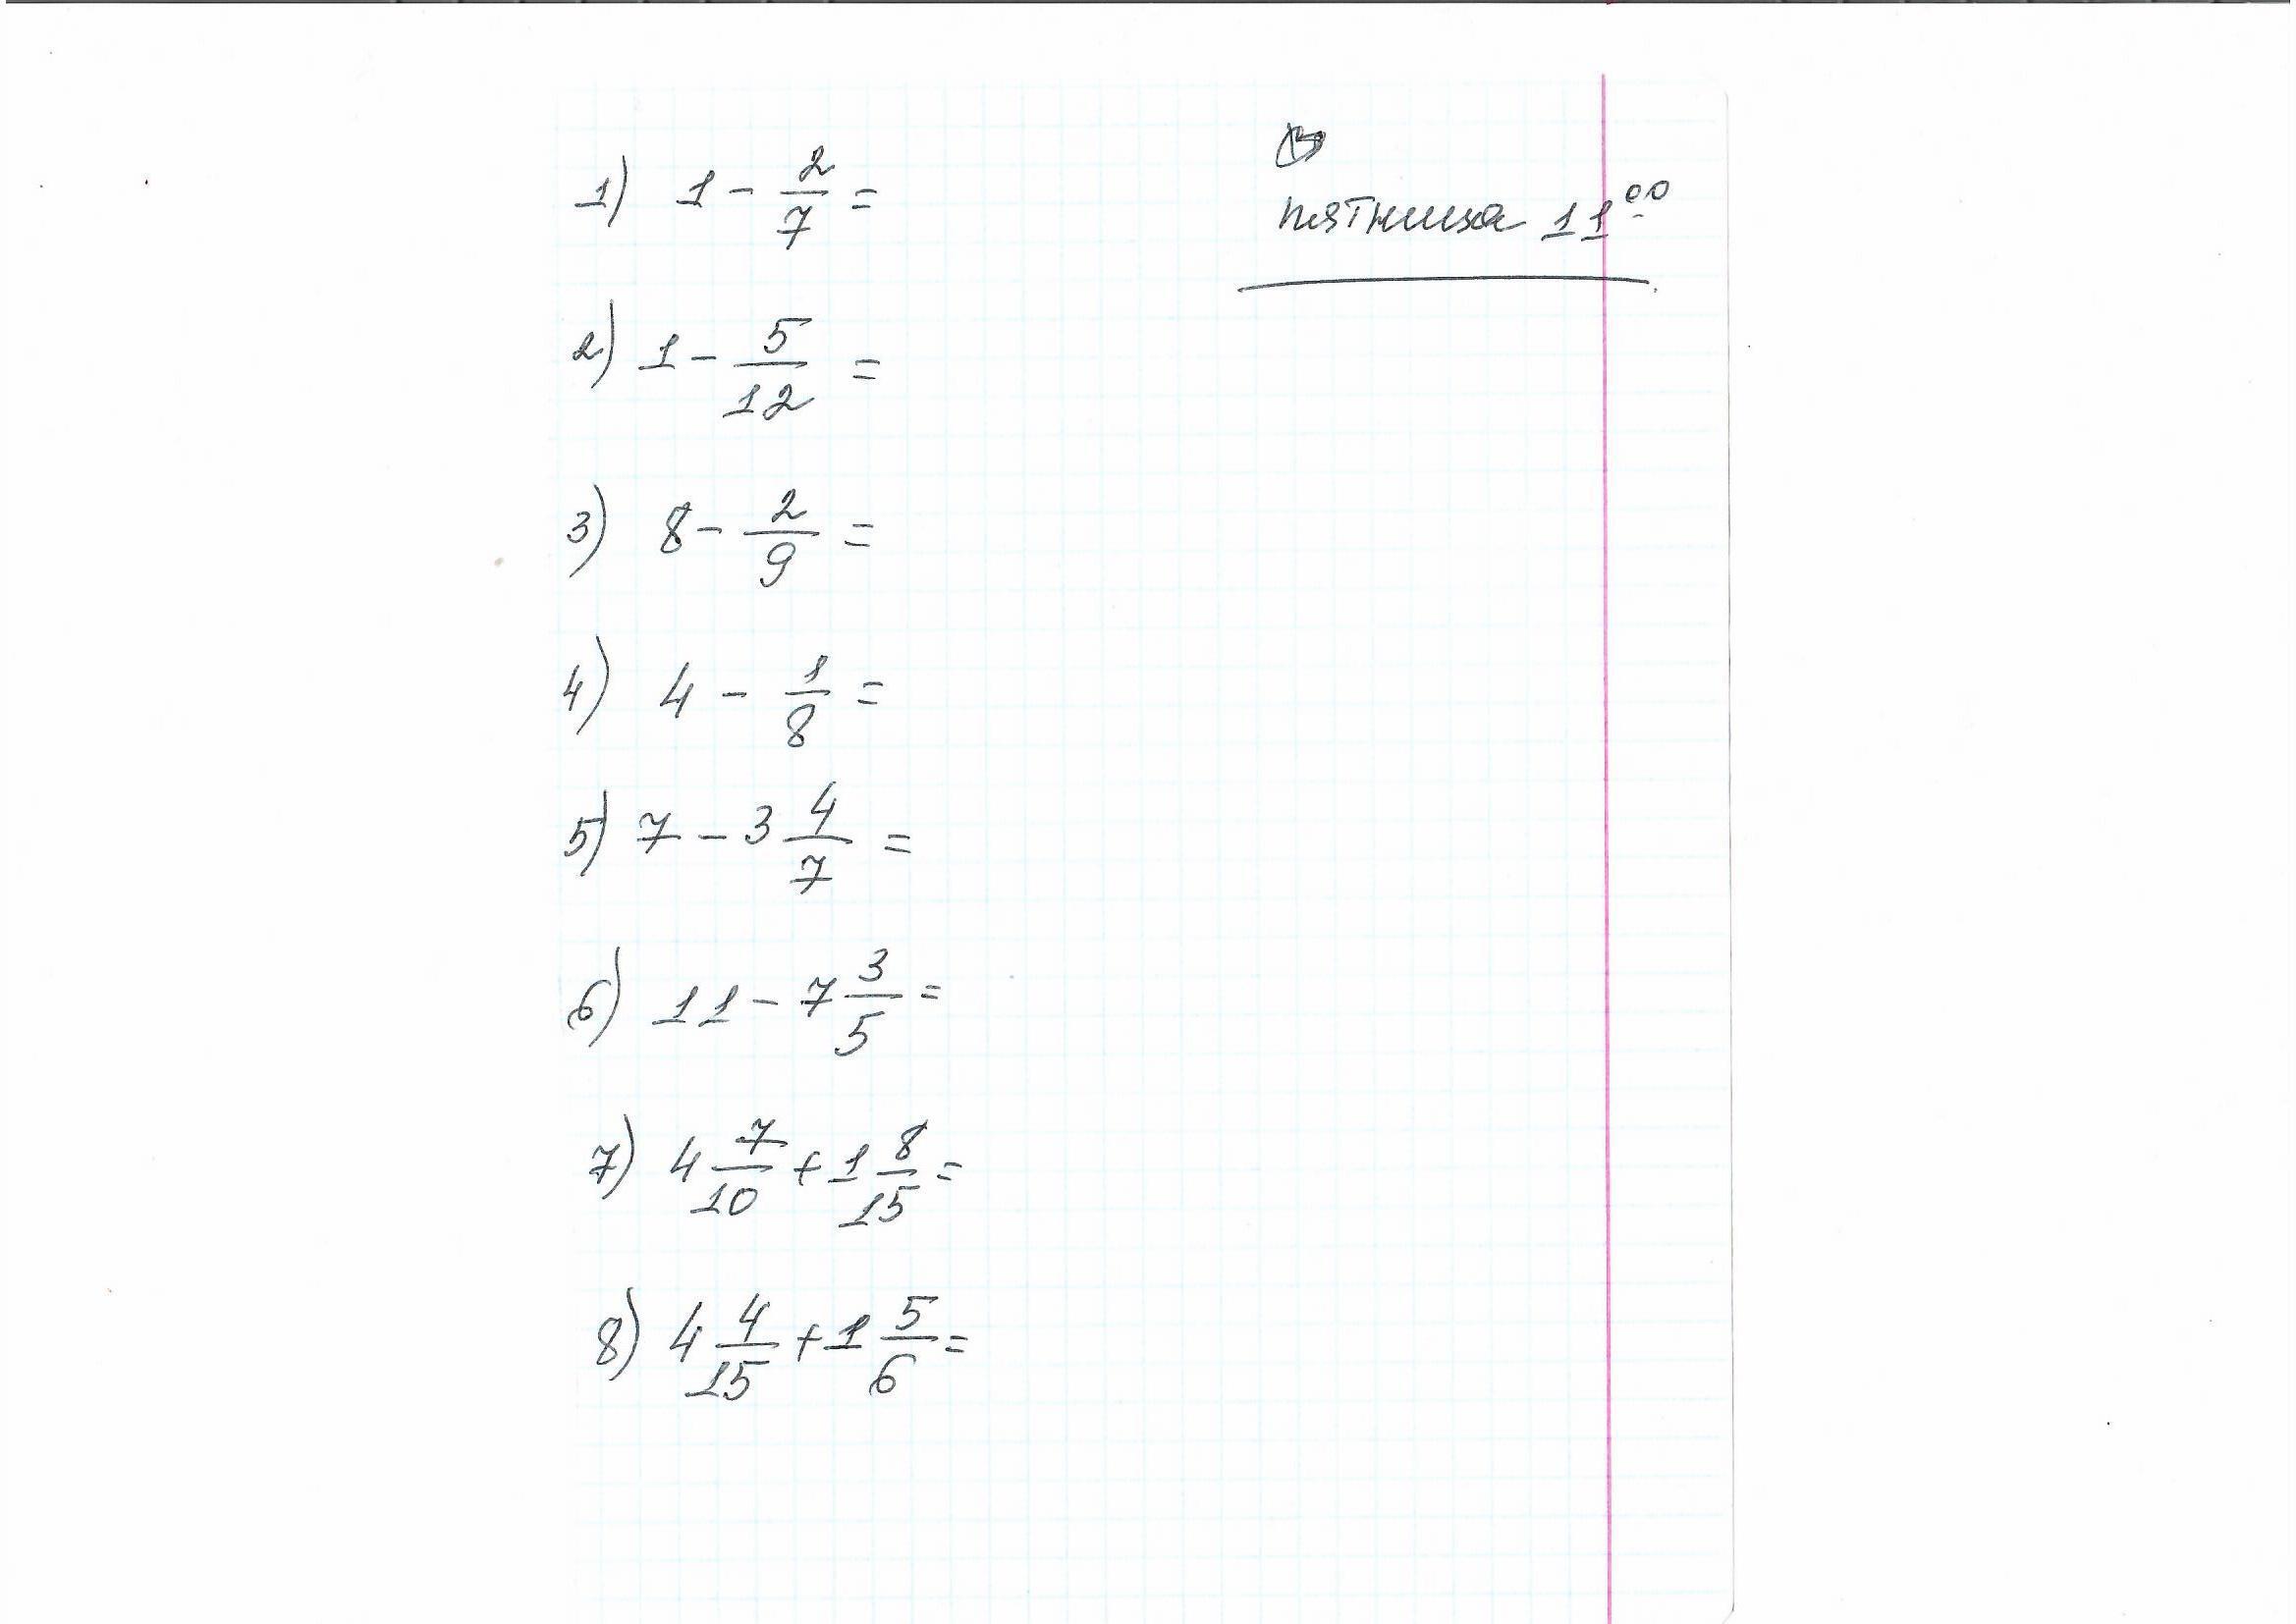 1) 1 - 2/7 =
пятница 11⁰⁰
2) 1 - 5/12 =
3) 8 - 2/9 =
4) 4 - 1/8 =
5) 7 - 3 4/7 =
6) 11 - 7 3/5 =
7) 4 7/10 + 1 8/15 =
8) 4 4/15 + 1 5/6 =